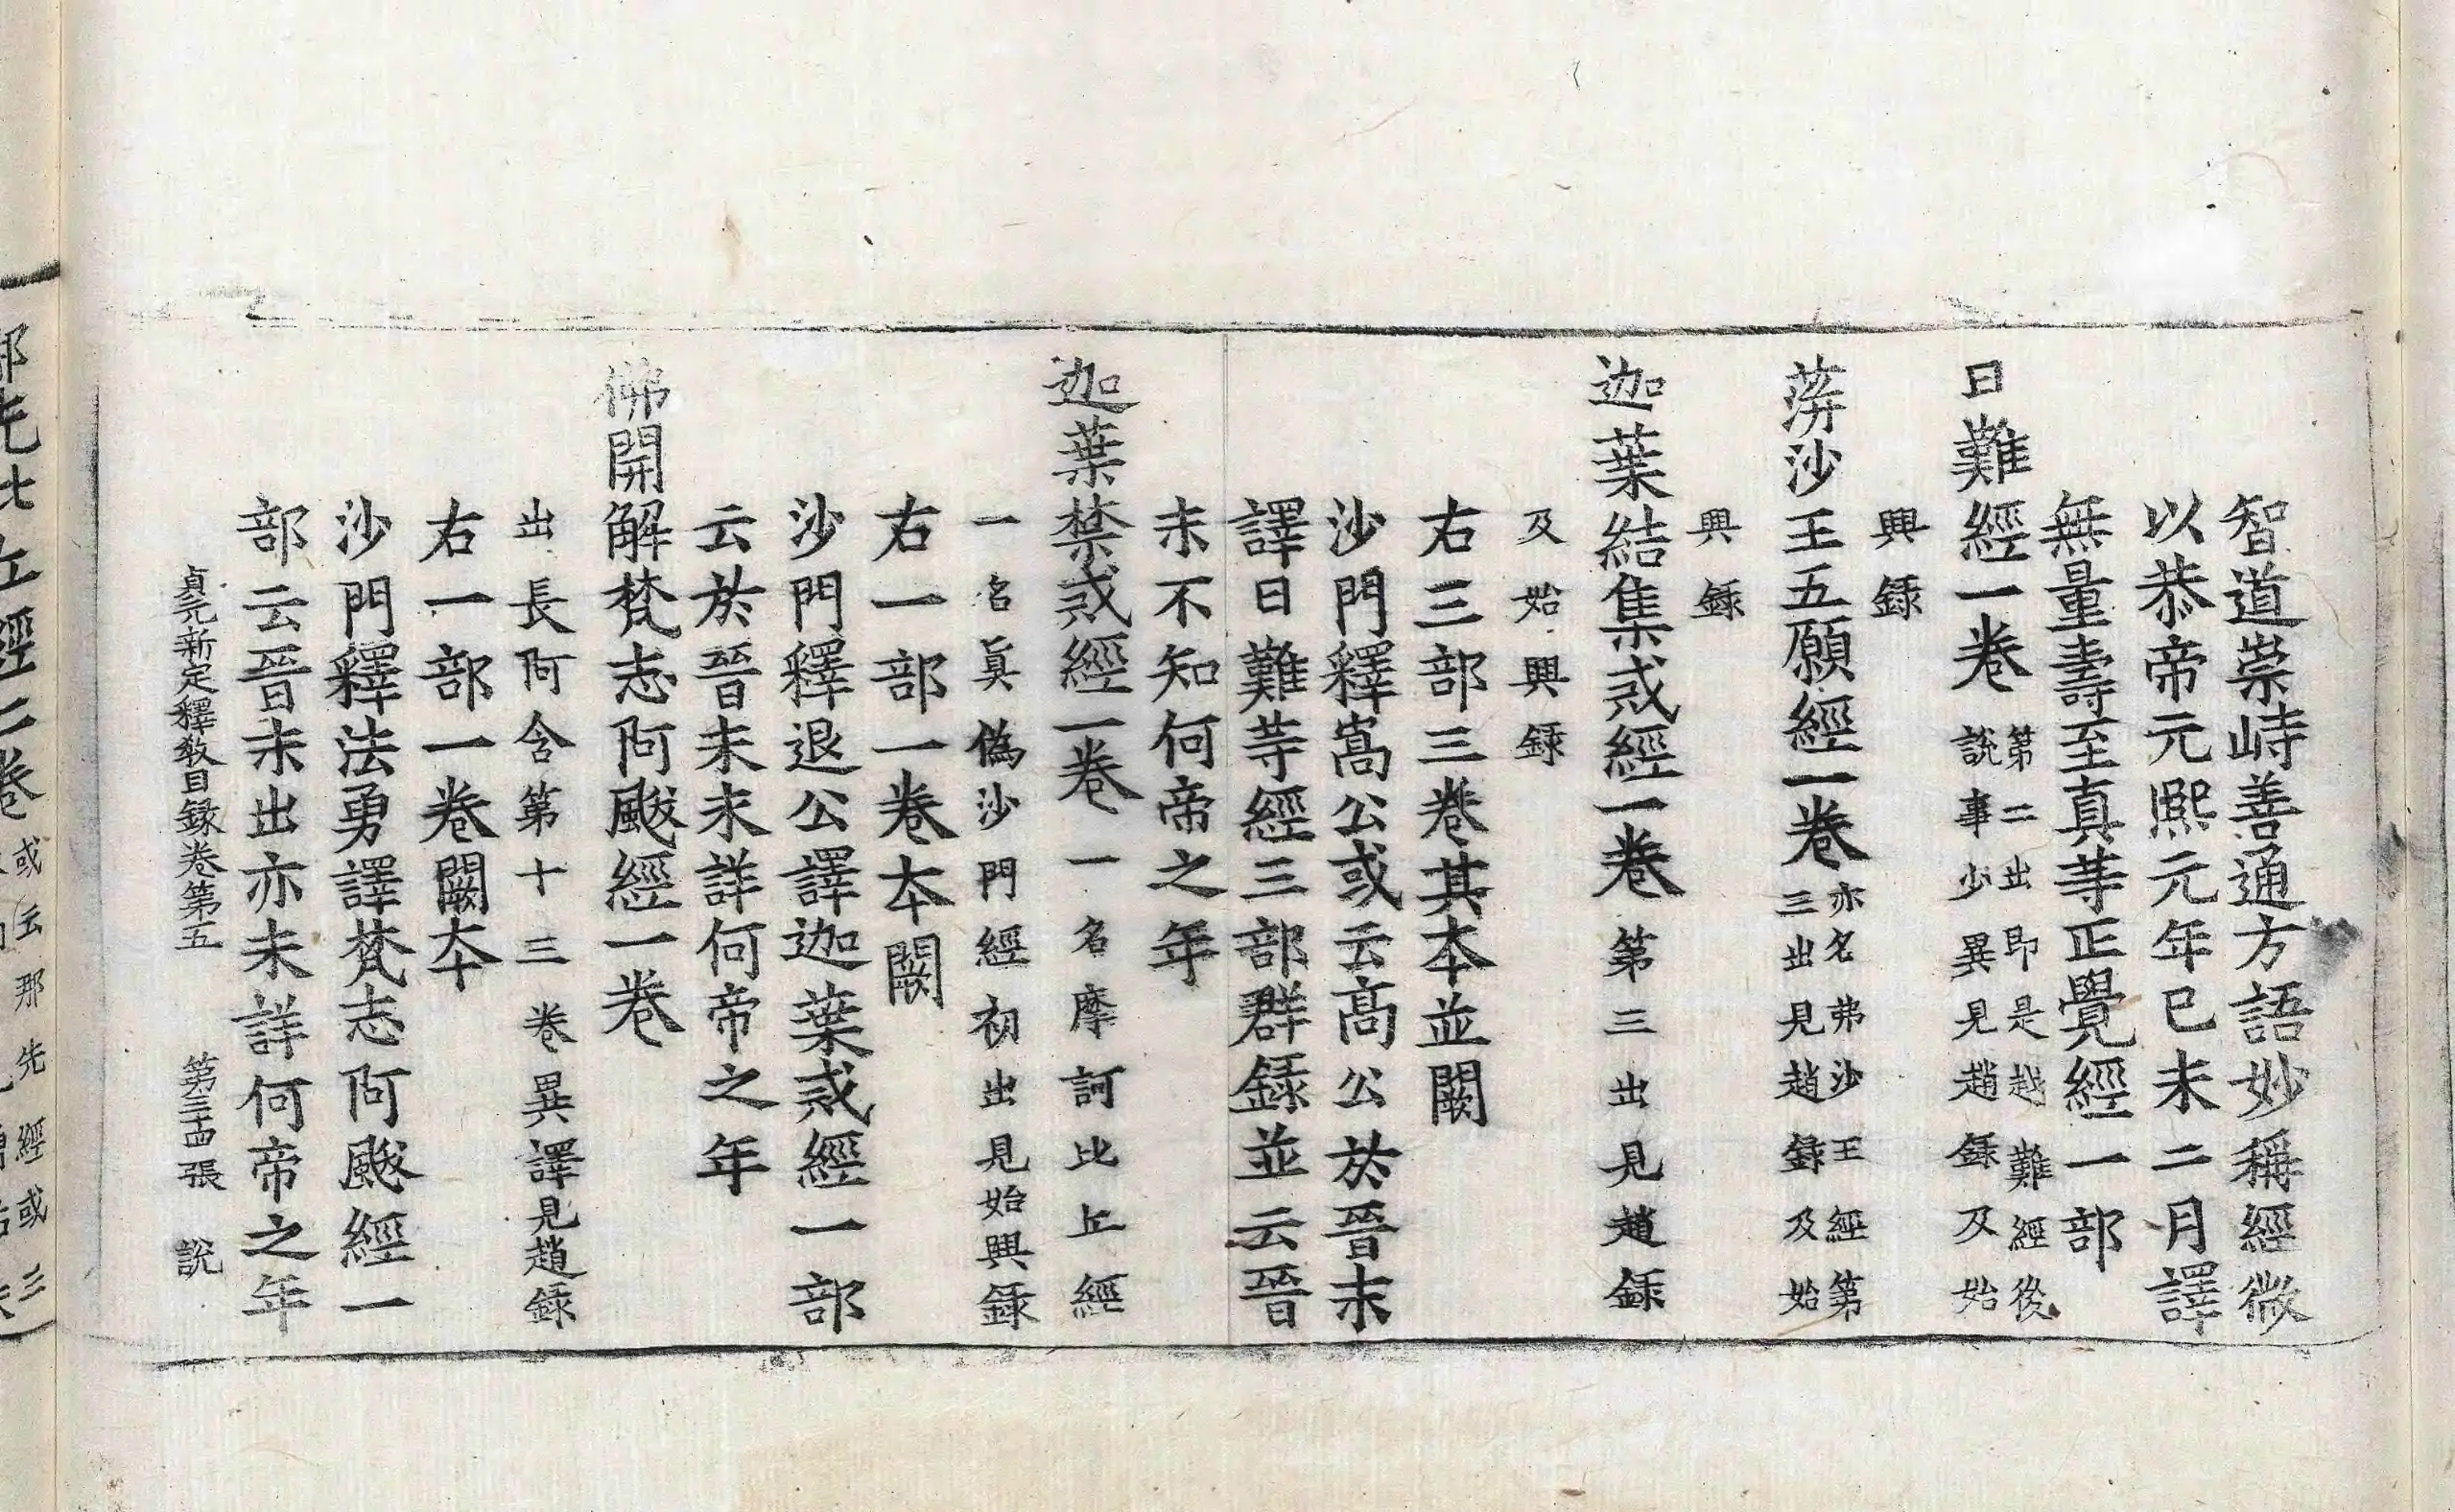 智道崇峙善通方語妙稱經微
以恭帝元熙元年已未二月譯
無量壽至真䓁正覺經一部
日難經一卷
第二出即是越難經後
說事少異見趙錄及始
興錄
蓱沙王五願經一卷
亦名弗沙王經第
三出見趙錄及始
興錄
迦葉結集戒經一卷第三出見趙錄
及始興錄
右三部三卷其本並闕
沙門釋嵩公或云高公於晉末
譯日難䓁經三部群錄並云晉
末不知何帝之年
迦葉禁戒經一卷一名摩訶比丘經
一名眞偽沙門經初出見始興錄
右一部一卷本闕
沙門釋退公譯迦葉戒經一部
云於晉末未詳何帝之年
佛開解梵志阿颰經一卷
出長阿含第十三卷異譯見趙錄
右一部一卷闕本
沙門釋法勇譯梵志阿颰經一
部云晉末出亦未詳何帝之年
貞元新定釋教目録卷第五 第三十四張 說
或云那先經或三
部先比丘經二卷